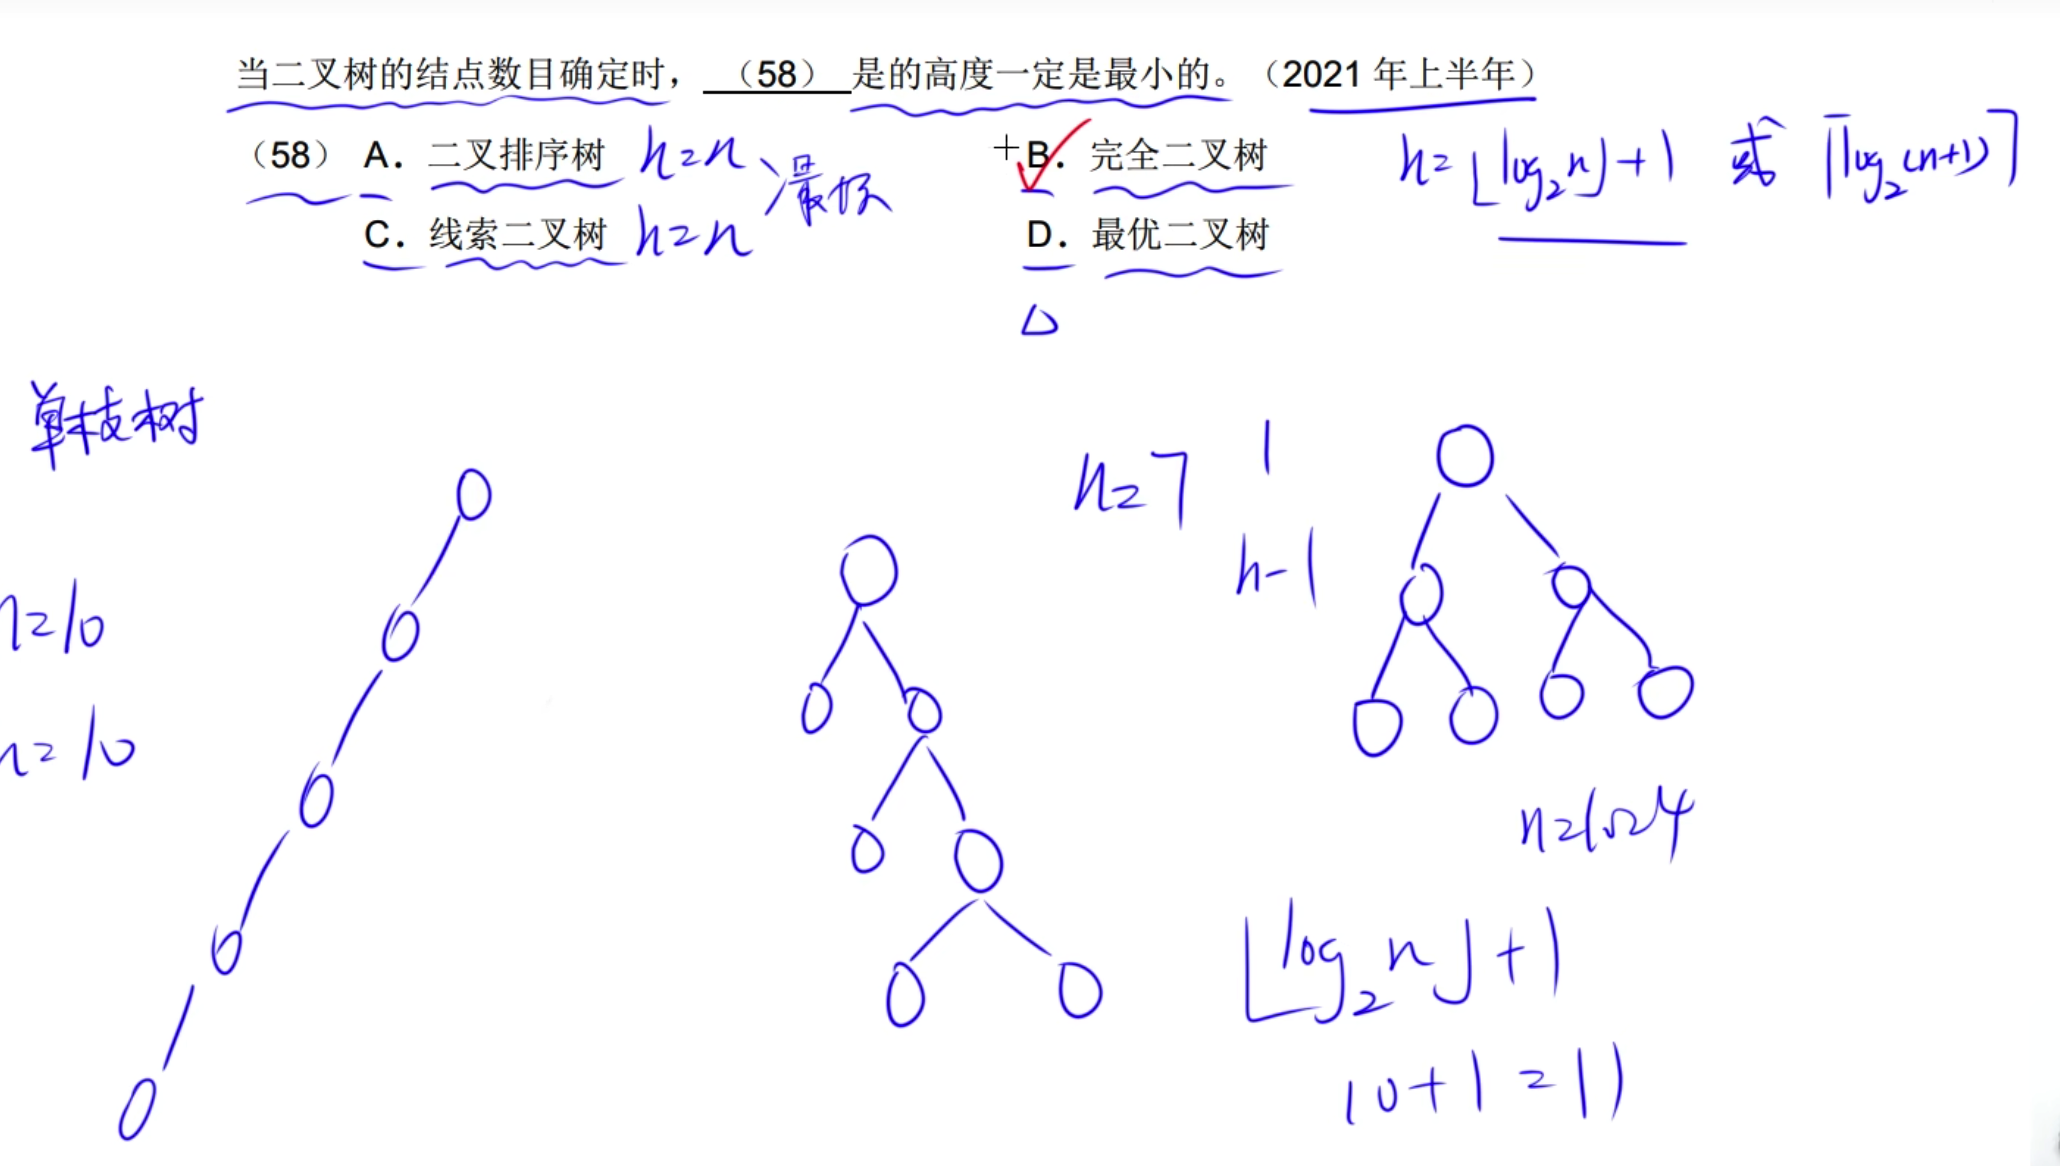 当二叉树的结点数目确定时，（58）是的高度一定是最小的。（2021 年上半年）
（58） A．二叉排序树 h=n B．完全二叉树 h=⌊log₂n⌋+1 或 ⌈log₂(n+1)⌉
最坏
C．线索二叉树 h=n D．最优二叉树
单枝树
n=7 1
h-1
n=10
h=10
n=1024
⌊log₂n⌋+1
10+1=11